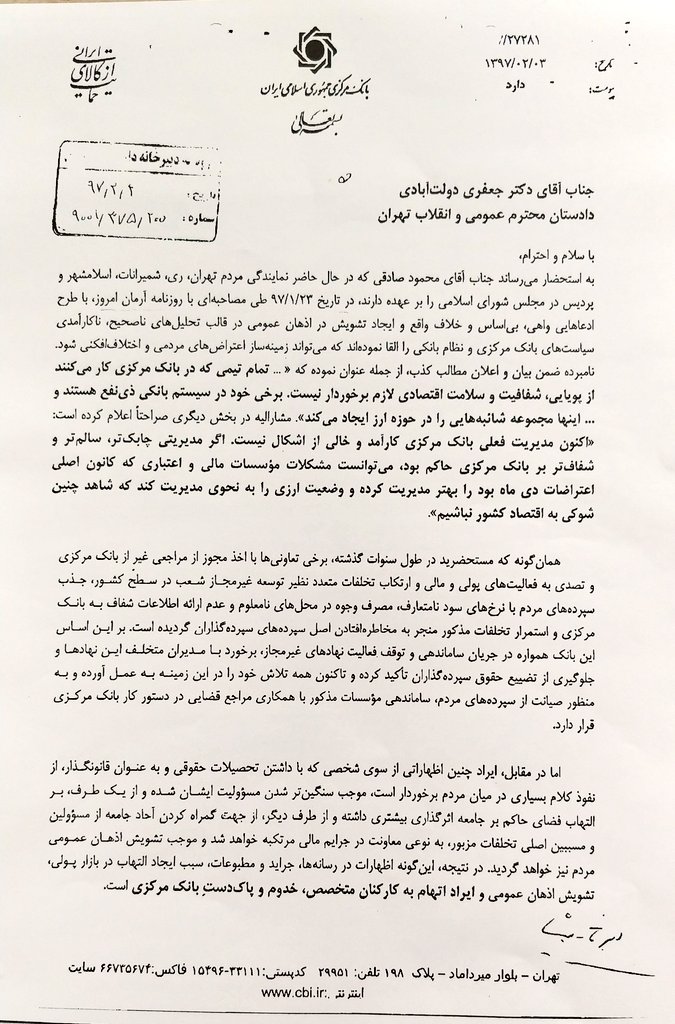 ۲۷۲۸۱/
تاریخ: ۱۳۹۷/۰۲/۰۳
پیوست: دارد
بانک مرکزی جمهوری اسلامی ایران
بسمه تعالی
حمایت از کالای ایرانی
دبیرخانه
تاریخ: ۹۷/۲/۲
شماره: ۹۰۰۱/۴۷۵/۲۰۰
جناب آقای دکتر جعفری دولت‌آبادی
دادستان محترم عمومی و انقلاب تهران
با سلام و احترام،
به استحضار می‌رساند جناب آقای محمود صادقی که در حال حاضر نمایندگی مردم تهران، ری، شمیرانات، اسلامشهر و
پردیس در مجلس شورای اسلامی را بر عهده دارند، در تاریخ ۹۷/۱/۲۳ طی مصاحبه‌ای با روزنامه آرمان امروز، با طرح
ادعاهایی واهی، بی‌اساس و خلاف واقع و ایجاد تشویش در اذهان عمومی در قالب تحلیل‌های ناصحیح، ناکارآمدی
سیاست‌های بانک مرکزی و نظام بانکی را القا نموده‌اند که می‌تواند زمینه‌ساز اعتراض‌های مردمی و اختلاف‌افکنی شود.
نامبرده ضمن بیان و اعلان مطالب کذب، از جمله عنوان نموده که «... تمام تیمی که در بانک مرکزی کار می‌کنند
از پویایی، شفافیت و سلامت اقتصادی لازم برخوردار نیست. برخی خود در سیستم بانکی ذی‌نفع هستند و
... اینها مجموعه شائبه‌هایی را در حوزه ارز ایجاد می‌کند». مشارالیه در بخش دیگری صراحتاً اعلام کرده است:
«اکنون مدیریت فعلی بانک مرکزی کارآمد و خالی از اشکال نیست. اگر مدیریتی چابک‌تر، سالم‌تر و
شفاف‌تر بر بانک مرکزی حاکم بود، می‌توانست مشکلات مؤسسات مالی و اعتباری که کانون اصلی
اعتراضات دی ماه بود را بهتر مدیریت کرده و وضعیت ارزی را به نحوی مدیریت کند که شاهد چنین
شوکی به اقتصاد کشور نباشیم».
همان‌گونه که مستحضرید در طول سنوات گذشته، برخی تعاونی‌ها با اخذ مجوز از مراجعی غیر از بانک مرکزی
و تصدی به فعالیت‌های پولی و مالی و ارتکاب تخلفات متعدد نظیر توسعه غیرمجاز شعب در سطح کشور، جذب
سپرده‌های مردم با نرخ‌های سود نامتعارف، مصرف وجوه در محل‌های نامعلوم و عدم ارائه اطلاعات شفاف به بانک
مرکزی و استمرار تخلفات مذکور منجر به مخاطره‌افتادن اصل سپرده‌های سپرده‌گذاران گردیده است. بر این اساس
این بانک همواره در جریان ساماندهی و توقف فعالیت نهادهای غیرمجاز، برخورد با مدیران متخلف این نهادها و
جلوگیری از تضییع حقوق سپرده‌گذاران تأکید کرده و تاکنون همه تلاش خود را در این زمینه به عمل آورده و به
منظور صیانت از سپرده‌های مردم، ساماندهی مؤسسات مذکور با همکاری مراجع قضایی در دستور کار بانک مرکزی
قرار دارد.
اما در مقابل، ایراد چنین اظهاراتی از سوی شخصی که با داشتن تحصیلات حقوقی و به عنوان قانونگذار، از
نفوذ کلام بسیاری در میان مردم برخوردار است، موجب سنگین‌تر شدن مسؤولیت ایشان شده و از یک طرف، بر
التهاب فضای حاکم بر جامعه اثرگذاری بیشتری داشته و از طرف دیگر، از جهت گمراه کردن آحاد جامعه از مسؤولین
و مسببین اصلی تخلفات مزبور، به نوعی معاونت در جرایم مالی مرتکبه خواهد شد و موجب تشویش اذهان عمومی
مردم نیز خواهد گردید. در نتیجه، این‌گونه اظهارات در رسانه‌ها، جراید و مطبوعات، سبب ایجاد التهاب در بازار پولی،
تشویش اذهان عمومی و ایراد اتهام به کارکنان متخصص، خدوم و پاک‌دستِ بانک مرکزی است.
تهران – بلوار میرداماد – پلاک ۱۹۸ تلفن: ۲۹۹۵۱ کدپستی: ۳۳۱۱۱-۱۵۴۹۶ فاکس: ۶۶۷۳۵۶۷۴ سایت
اینترنتی: www.cbi.ir